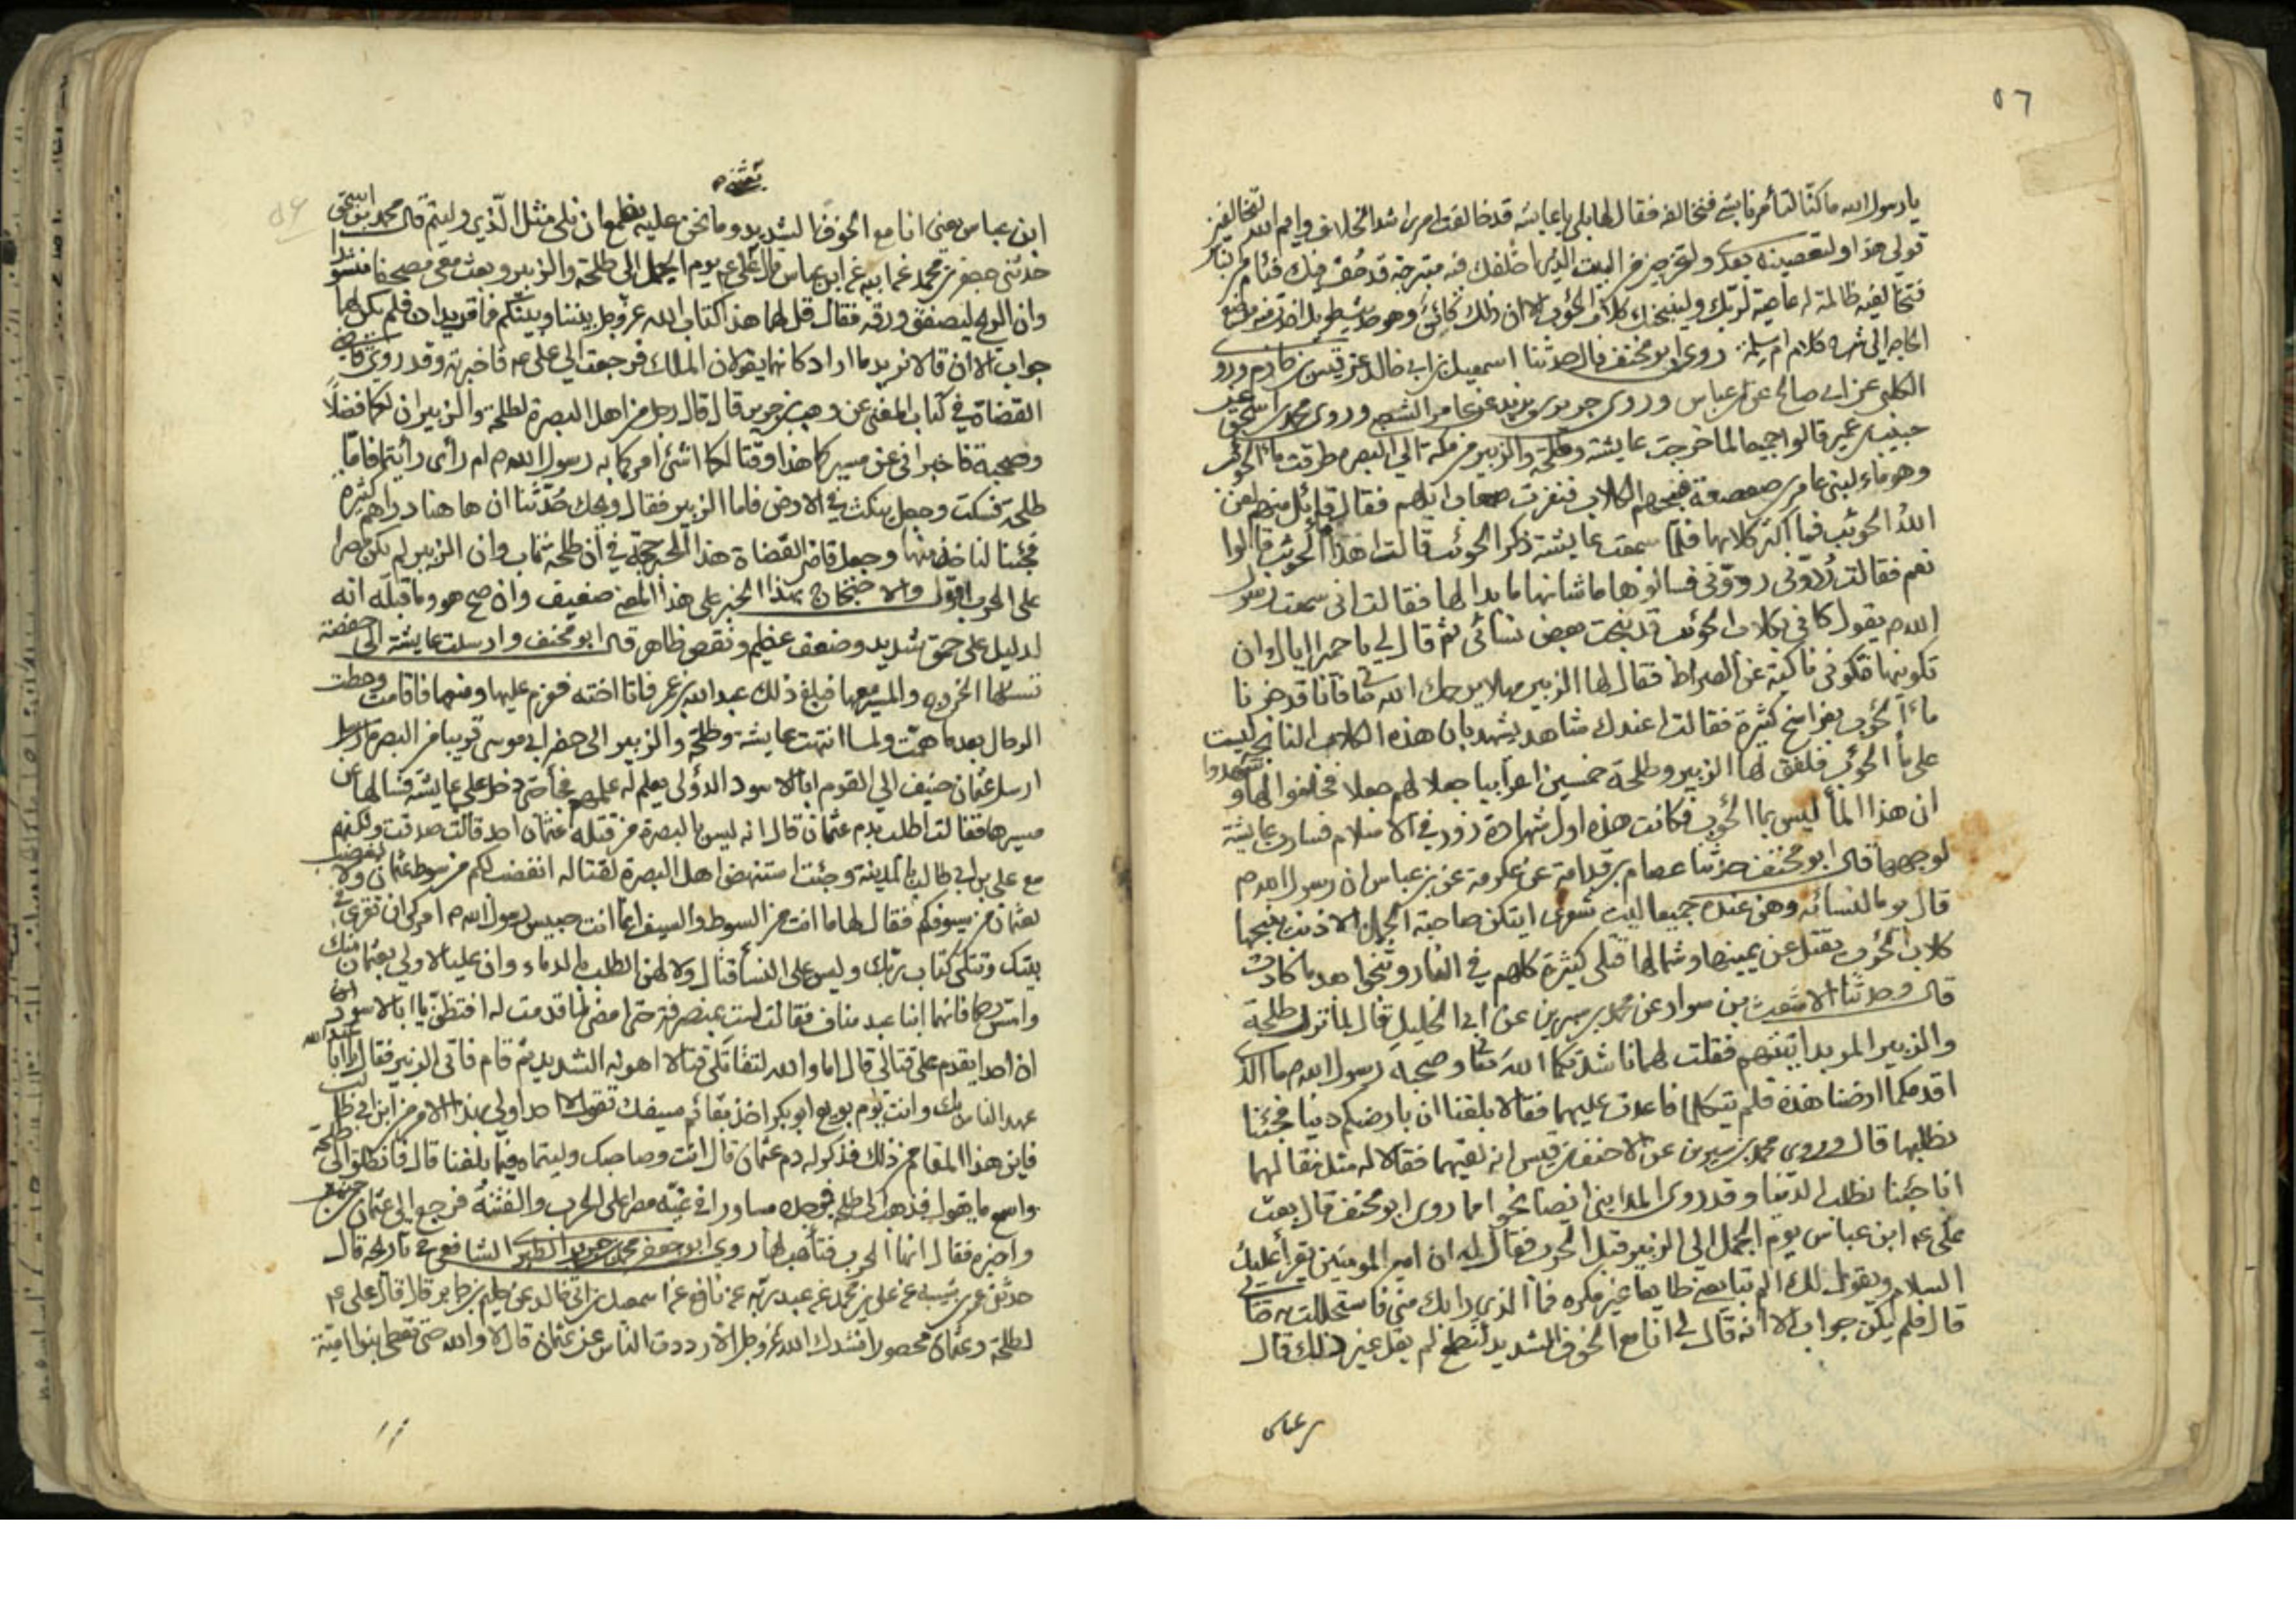 ٥٦
يا رسول الله ما كنا لتأمرنا بشئ فنخالفه فقال لها بلى يا عايشه قد خالفت امرى اشد الخلاف وايم الله لتخالفين
قولى هذا ولتعصينه بعدى ولتخرجين من البيت الذى اخلفك فيه متبرجة قد حف بك فئام من الناس
فتخالفينه ظالمة له عاصية لربك ولينبحنك كلاب الحوئب الا ان ذلك كائن وهو
الى كلام ام سلمة روى ابو مخنف قال حدثنا اسمعيل بن ابى خالد عن قيس بن ابى حازم وروى
الكلبى عن ابى صالح عن ابن عباس وروى جرير بن يزيد عن عامر الشعبى وروى محمد بن اسحق عن
حبيب بن عمير قالوا جميعا لما خرجت عايشة وطلحة والزبير من مكة الى البصرة طرقت ماء الحوئب
وهو ماء لبنى عامر بن صعصعة فنبحتهم الكلاب فنفرت صعاب ابلهم فقال قائل منهم لعن
الله الحوئب فما اكثر كلابها فلما سمعت عايشة ذكر الحوئب قالت اهذا ماء الحوئب قالوا
نعم فقالت ردونى ردونى فسالوها ما شانها ما بدا لها فقالت انى سمعت رسول
الله ص يقول كانى بكلاب الحوئب قد نبحت بعض نسائى ثم قال لى يا حميرا اياك ان
تكونيها فتكونى ناكبة عن الصراط فقال لها الزبير مهلا يرحمك الله فانا قد جزنا
ماء الحوئب بفراسخ كثيرة فقالت اعندك شاهد يشهد بان هذه الكلاب النابحة ليست
على ماء الحوئب فلفق لها الزبير وطلحة خمسين اعرابيا جعلا لهم جعلا فحلفوا لها وشهدوا
ان هذا الماء ليس بماء الحوئب فكانت هذه اول شهادة زور فى الاسلام فسارت عايشة
لوجهها قال ابو مخنف حدثنا عصام بن قدامة عن عكرمة عن ابن عباس ان رسول الله ص
قال يوما لنسائه وهن عنده جميعا ليت شعرى ايتكن صاحبة الجمل الاذنب تنبحها
كلاب الحوئب يقتل عن يمينها وشمالها قتلى كثيرة كلهم فى النار وتنجوا بعد ما كادت
قال وحدثنا الاشعث بن سوار عن محمد بن سيرين عن ابى الخليل قال لما نزل طلحة
والزبير المربد اتيتهم فقلت لهما ناشدتكما الله تعالى وصحبة رسول الله ص ما الذى
اقدمكما ارضنا هذه فلم يتكلما فاعدت عليهما فقالا بلغنا ان بارضكم دنيا فجئنا
نطلبها قال وروى محمد بن سيرين عن الاحنف بن قيس انه لقيهما فقالا له مثل مقالهما
انا جئنا نطلب الدنيا وقد روى المداينى ايضا نحوا مما روى ابو مخنف قال بعث
على ع ابن عباس يوم الجمل الى الزبير قبل الحرب فقال له ان امير المومنين يقرأ عليك
السلام ويقول لك الم تبايعنى طايعا غير مكره فما الذى رابك منى فاستحللت به قتالى
قال فلم يكن جواب الا انه قال لى انا مع الخوف الشديد لنطمع لم يقل غير ذلك قال
ابن عباس يعنى انا مع الخوف الشديد وما نحن عليه نطمع ان نلى مثل الذى وليتم قال محمد بن اسحق
حدثنى جعفر بن محمد عن ابيه عن ابن عباس قال على ع يوم الجمل الى طلحة والزبير وبعث معى مصحفا منشورا
وان الريح ليصفق ورقه فقال قل لهما هذا كتاب الله عز وجل بيننا وبينكم فما تريدان فلم يكن لهما
جواب الا ان قالا نريد ما اراد كانهما يقولان الملك فرجعت الى على ع فاخبرته وقد روى قاضى
القضاة فى كتاب المغنى عن وهب بن جرير قال قال رجل من اهل البصرة لطلحة والزبير ان لكما فضلا
وصحبة فاخبرانى عن مسيركما هذا وقتالكما اشئ امركما به رسول الله ص ام رأى رأيتما فاما
طلحة فسكت وجعل ينكث فى الارض فاما الزبير فقال ويحك حدثنا ان ها هنا دراهم كثيرة
فجئنا لناخذ منها وجعل قاضى القضاة هذا الخبر حجة فى ان طلحة تاب وان الزبير لم يكن مصرا
على الحرب اقول والاحتجاج بهذا الخبر على هذا المعنى ضعيف وان صح هو وما قبله انه
لدليل على حمق شديد وضعف عظيم ونقص ظاهر قال ابو مخنف وارسلت عايشة الى حفصة
تسالها الخروج والمسير معها فبلغ ذلك عبد الله بن عمر فاتا اخته فعزم عليها ومنعها فاقامت وحطت
الرحال بعد ما همت ولما انتهت عايشة وطلحة والزبير الى حفر ابى موسى قريبا من البصرة
ارسل عثمان بن حنيف الى القوم ابا الاسود الدؤلى يعلم له علمهم فجاء حتى دخل على عايشة فسالها عن
مسيرها فقالت اطلب بدم عثمان قال انه ليس بالبصرة من قتلة عثمان احد قالت صدقت ولكنهم
مع على بن ابى طالب بالمدينة وجئت استنهض اهل البصرة لقتاله انغضب لكم من سوط عثمان ولا نغضب
لعثمان من سيوفكم فقال لها ما انت من السوط والسيف انما انت حبيس رسول الله ص امرك ان تقرى فى
بيتك وتتلى كتاب ربك وليس على النساء قتال ولا لهن الطلب بالدماء وان عليا لاولى بعثمان منك
وامس رحما فانهما ابنا عبد مناف فقالت لست بمنصرفة حتى امضى لما قدمت له افتظن يا ابا الاسود ان
ان احدا يقدم على قتالى قال اما والله لتقاتلن قتالا اهونه الشديد ثم قام فاتى الزبير فقال يا ابا عبد الله
عهد الناس بك وانت يوم بويع ابو بكر اخذ بقائم سيفك تقول لا احد اولى بهذا الامر من ابن ابى طالب
فاين هذا المقام من ذلك فذكر له دم عثمان قال انت وصاحبك وليتماه فيما بلغنا قال فانطلق الى طلحة
واسمع ما يقول فذهب الى طلحة فوجده سادرا فى غيه مصرا على الحرب والفتنة فرجع الى عثمان بن حنيف
واخبره فقال انها الحرب فتأهب لها روى ابو جعفر محمد بن جرير الطبرى الشافعى فى تاريخه قال
حدثنى عمر بن شبة عن على بن محمد عن عبد ربه عن نافع عن اسمعيل بن ابى خالد عن حكيم بن جابر قال قال على ع
لطلحة وعثمان محصور انشدك الله عز وجل الا رددت الناس عن عثمان قال لا والله حتى تعطى بنوا امية